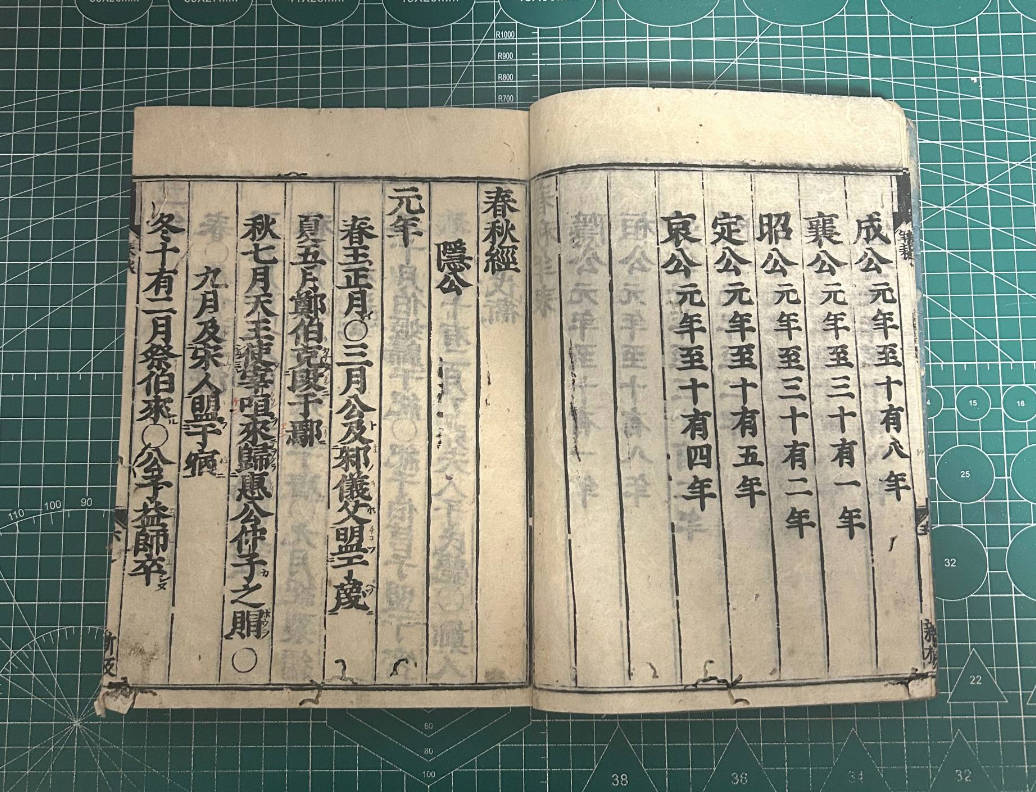 成公元年至十有八年
襄公元年至三十有一年
昭公元年至三十有二年
定公元年至十有五年
哀公元年至十有四年
春秋經
隱公
元年
春王正月〇三月公及邾儀父盟于蔑
夏五月鄭伯克段于鄢
秋七月天王使宰咺來歸惠公仲子之賵〇
九月及宋人盟于宿
冬十有二月祭伯來〇公子益師卒
R1000
R900
R800
R700
110
100
90
15
18
25
32
22
60
80
100
38
36
34
32